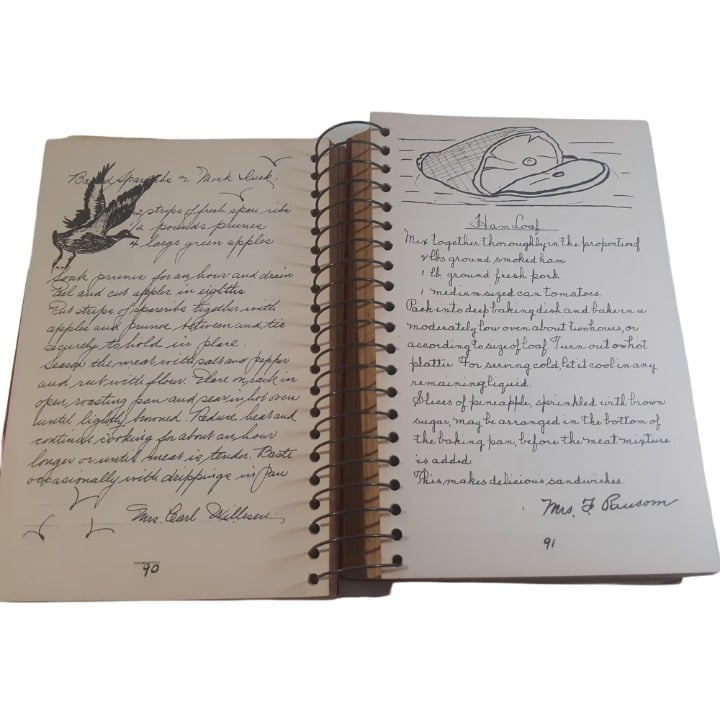 Baked Spareribs or Mock Duck
2 strips of fresh spare ribs
1/2 pounds prunes
4 large green apples
Soak prunes for an hour and drain
Peel and cut apples in eighths
Put strips of spareribs together with
apples and prunes between and tie
securely to hold in place.
Season the meat with salt and pepper
and rub with flour. Place on rack in
open roasting pan and sear in hot oven
until lightly browned. Reduce heat and
continue cooking for about an hour
longer or until meat is tender. Baste
occasionally with drippings in pan
Mrs. Carl
90
Ham Loaf
Mix together thoroughly in the proportion of
2 lbs ground smoked ham
1 lb. ground fresh pork
1 medium sized can tomatoes.
Pack into deep baking dish and bake in a
moderately low oven about two hours, or
according to size of loaf. Turn out on hot
platter. For serving cold, let it cool in any
remaining liquid.
Slices of pineapple, sprinkled with brown
sugar, may be arranged in the bottom of
the baking pan, before the meat mixture
is added.
This makes delicious sandwiches.
Mrs. F. Ransom
91